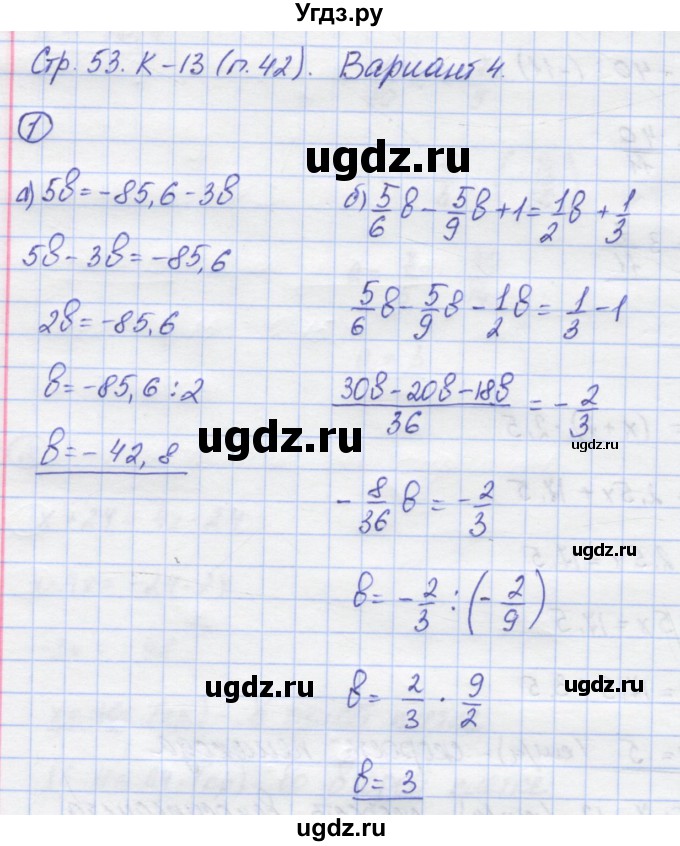 Угдз.ру
Стр. 53. К-13 (п.42). Вариант 4.
1
а) 5в = -85,6 - 3в
5в - 3в = -85,6
2в = -85,6
в = -85,6 : 2
в = -42,8
б) 5/6 в - 5/9 в + 1 = 1/2 в + 1/3
5/6 в - 5/9 в - 1/2 в = 1/3 - 1
30в - 20в - 18в / 36 = - 2/3
- 8/36 в = - 2/3
в = - 2/3 : (- 2/9)
в = 2/3 · 9/2
в = 3
ugdz.ru
ugdz.ru
ugdz.ru
ugdz.ru
ugdz.ru
ugdz.ru
ugdz.ru
ugdz.ru